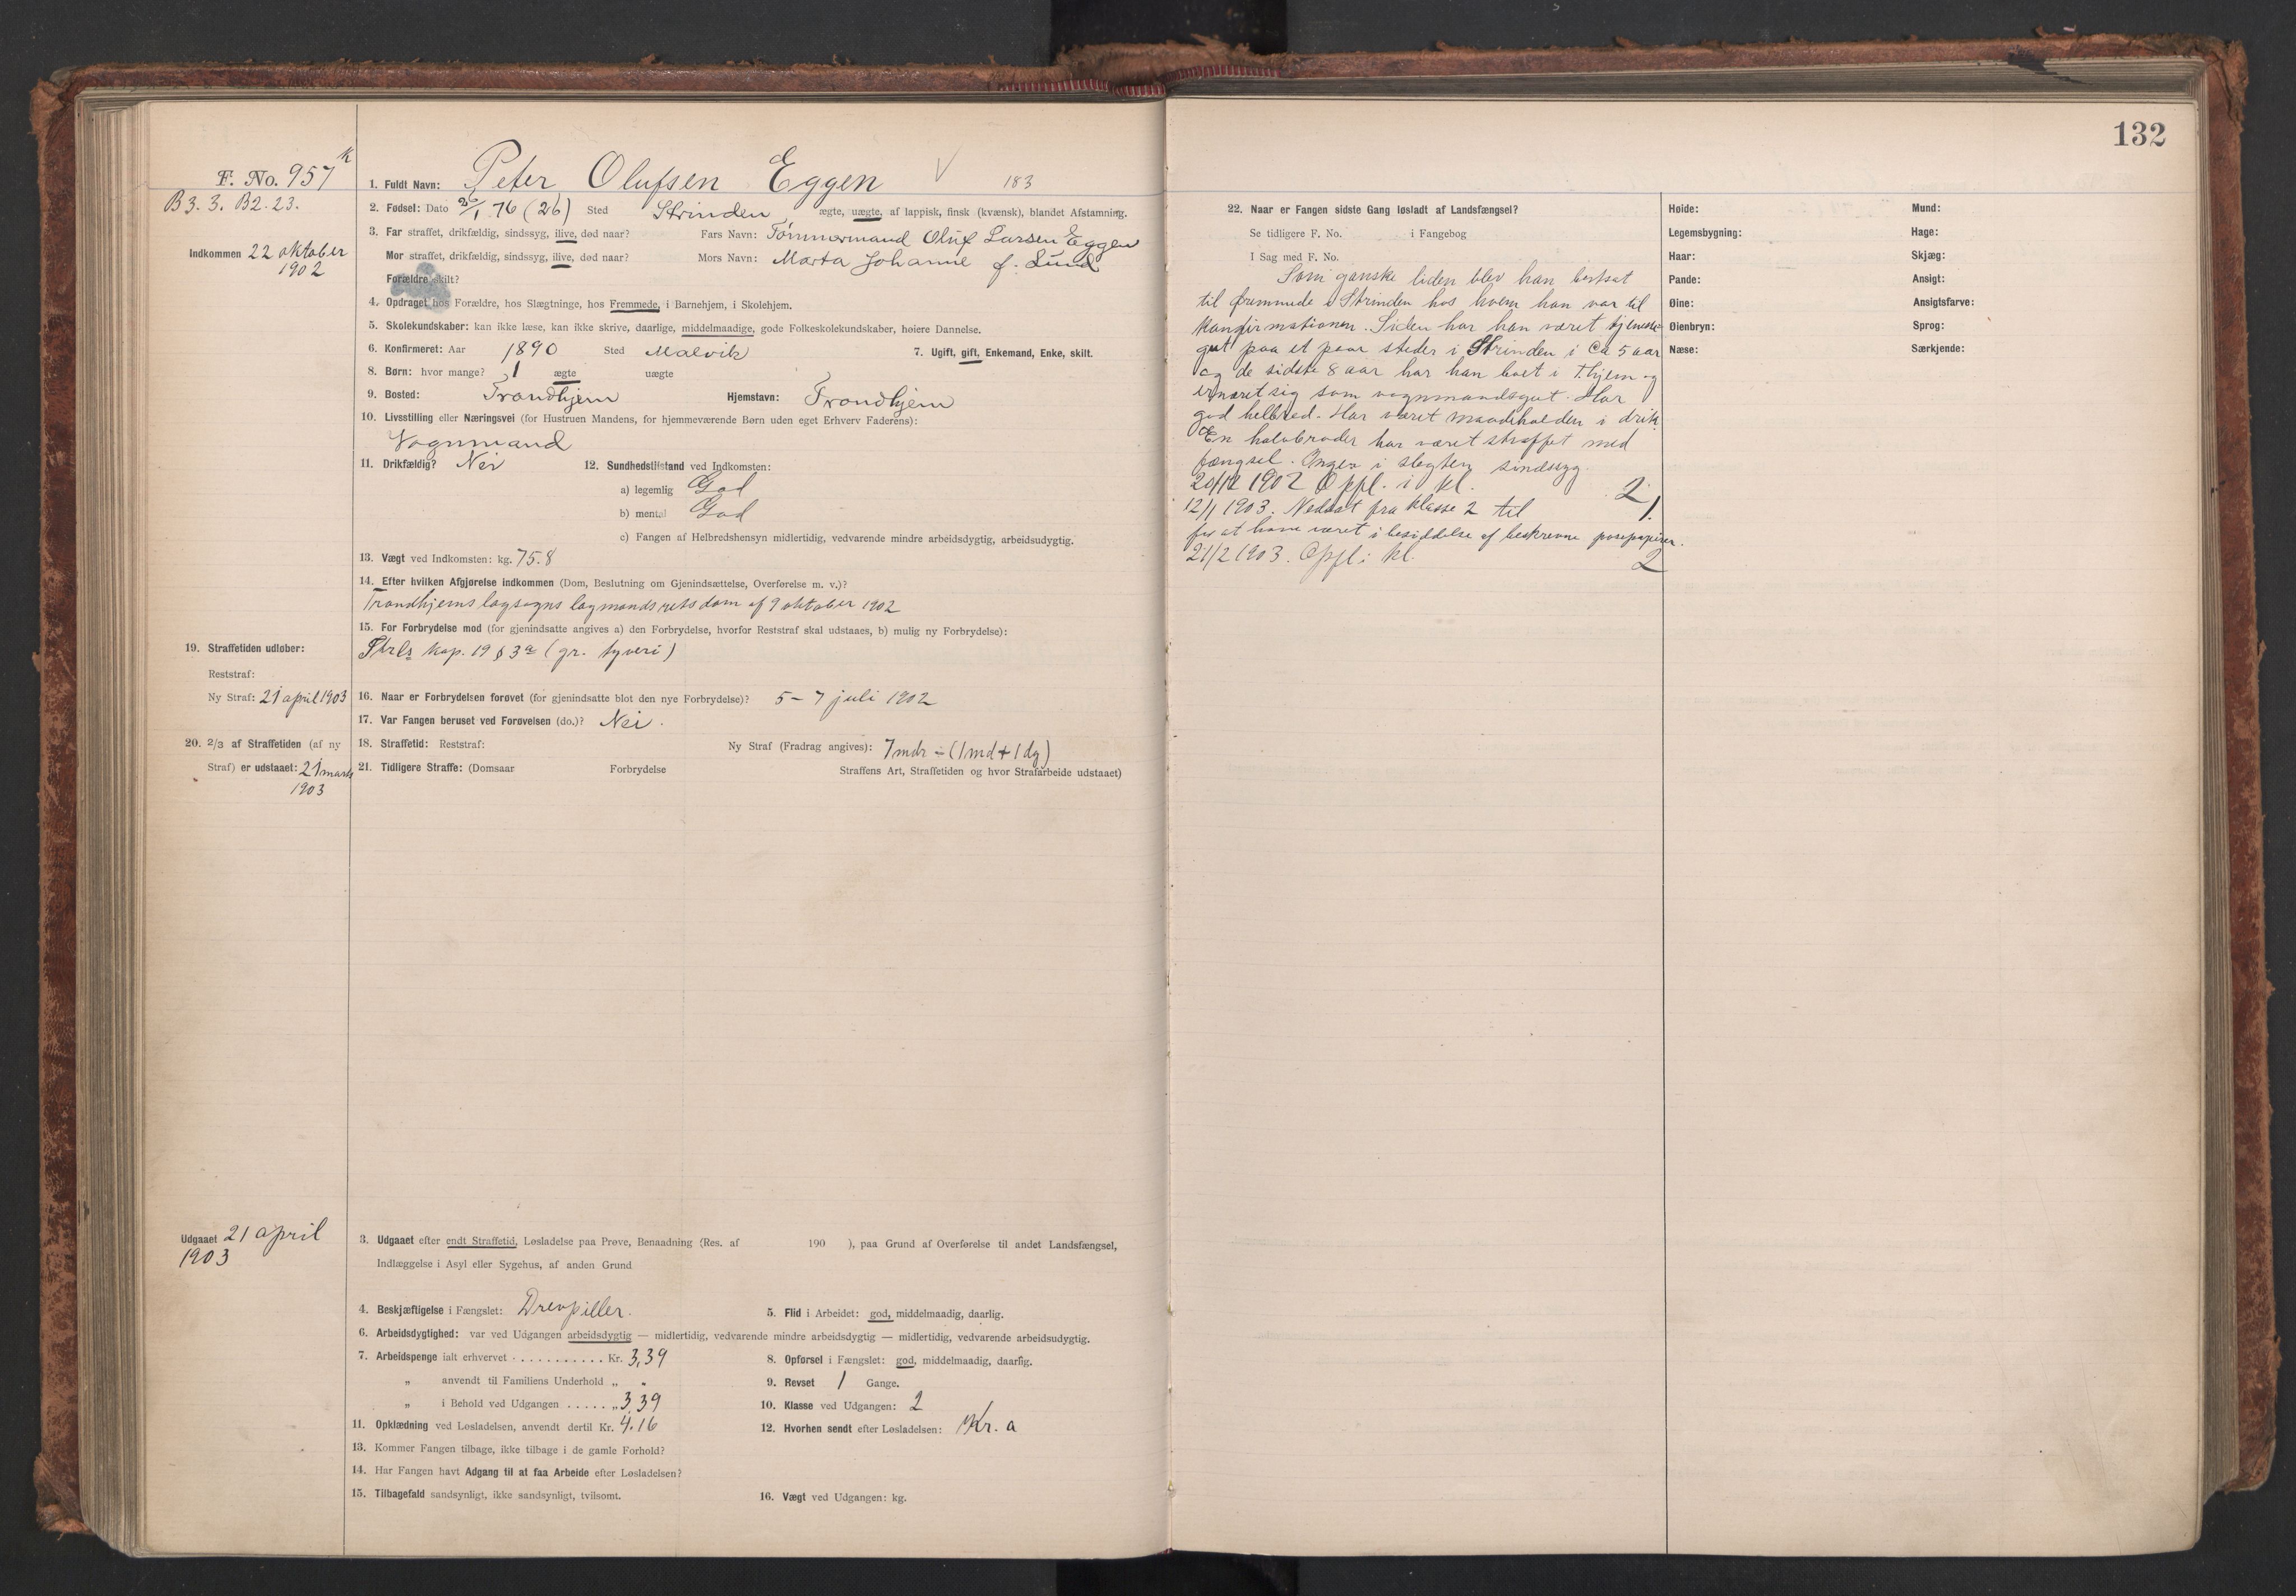 132
F. No. 957 K
B3. 3. B2. 23.
Indkommen 22 oktober
1902
1. Fuldt Navn: Peter Olufsen Eggen V 183
2. Fødsel: Dato 26/1 76 (26) Sted Strinden, ægte, uægte, af lappisk, finsk (kvænsk), blandet Afstamning.
3. Far straffet, drikfældig, sindssyg, ilive, død naar? Fars Navn: Tømmermand Oluf Larsen Eggen
Mor straffet, drikfældig, sindssyg, ilive, død naar? Mors Navn: Marta Johanne f. Lund
Forældre skilt?
4. Opdraget hos Forældre, hos Slægtninge, hos Fremmede, i Barnehjem, i Skolehjem.
5. Skolekundskaber: kan ikke læse, kan ikke skrive, daarlige, middelmaadige, gode Folkeskolekundskaber, høiere Dannelse.
6. Konfirmeret: Aar 1890 Sted Malvik 7. Ugift, gift, Enkemand, Enke, skilt.
8. Børn: hvor mange? 1 ægte uægte
9. Bosted: Trondhjem Hjemstavn: Trondhjem
10. Livsstilling eller Næringsvei (for Hustruen Mandens, for hjemmeværende Børn uden eget Erhverv Faderens):
Vognmand
11. Drikfældig? Nei 12. Sundhedstilstand ved Indkomsten:
a) legemlig God
b) mental God
c) Fangen af Helbredshensyn midlertidig, vedvarende mindre arbeidsdygtig, arbeidsudygtig.
13. Vægt ved Indkomsten: kg. 75.8
14. Efter hvilken Afgjørelse indkommen (Dom, Beslutning om Gjenindsættelse, Overførelse m. v.)?
Trondhjems lagsogns lagmandsretsdom af 9 oktober 1902
15. For Forbrydelse mod (for gjenindsatte angives a) den Forbrydelse, hvorfor Reststraf skal udstaaes, b) mulig ny Forbrydelse):
Strls kap. 19 § 3a (gr. tyveri)
19. Straffetiden udløber:
Reststraf:
Ny Straf: 21 april 1903
16. Naar er Forbrydelsen forøvet (for gjenindsatte blot den nye Forbrydelse)? 5 - 7 juli 1902
17. Var Fangen beruset ved Forøvelsen (do.)? Nei.
20. 2/3 af Straffetiden (af ny
Straf) er udstaaet: 21 marts
1903
18. Straffetid: Reststraf: Ny Straf (Fradrag angives): 7 mdr ÷ (1 md + 1 dg)
21. Tidligere Straffe: (Domsaar Forbrydelse Straffens Art, Straffetiden og hvor Strafarbeide udstaaet)
Udgaaet 21 april
1903
3. Udgaaet efter endt Straffetid, Løsladelse paa Prøve, Benaadning (Res. af 190 ), paa Grund af Overførelse til andet Landsfængsel,
Indlæggelse i Asyl eller Sygehus, af anden Grund
4. Beskjæftigelse i Fængslet: Drevpiller. 5. Flid i Arbeidet: god, middelmaadig, daarlig.
6. Arbeidsdygtighed: var ved Udgangen arbeidsdygtig — midlertidig, vedvarende mindre arbeidsdygtig — midlertidig, vedvarende arbeidsudygtig.
7. Arbeidspenge ialt erhvervet . . . . . . . . . . . Kr. 3,39 8. Opførsel i Fængslet: god, middelmaadig, daarlig.
„ anvendt til Familiens Underhold „ „ 9. Revset 1 Gange.
„ i Behold ved Udgangen . . . . . „ 3,39 10. Klasse ved Udgangen: 2
11. Opklædning ved Løsladelsen, anvendt dertil Kr. 4.16 12. Hvorhen sendt efter Løsladelsen: Kr. a
13. Kommer Fangen tilbage, ikke tilbage i de gamle Forhold?
14. Har Fangen havt Adgang til at faa Arbeide efter Løsladelsen?
15. Tilbagefald sandsynligt, ikke sandsynligt, tvilsomt. 16. Vægt ved Udgangen: kg.
22. Naar er Fangen sidste Gang løsladt af Landsfængsel?
Se tidligere F. No. i Fangebog
I Sag med F. No.
Som ganske liden blev han bortsat
til fremmede i Strinden hos hvem han var til
konfirmationen. Siden har han været tjeneste-
gut paa et paar steder i Strinden i ca 5 aar
og de sidste 8 aar har han boet i T.hjem og
ernæret sig som vognmandsgut. Har
god helbred. Har været maadeholden i drik
En halvbroder har været straffet med
fængsel. Ingen i slegten sindssyg.
20/12 1902 Oppl. i kl. 2
12/1 1903. Nedsat fra klasse 2 til 1.
for at have været i besiddelse af beskrevne posepapirer.
21/2 1903. Oppl. i kl. 2
Høide: Mund:
Legemsbygning: Hage:
Haar: Skjæg:
Pande: Ansigt:
Øine: Ansigtsfarve:
Øienbryn: Sprog:
Næse: Særkjende: